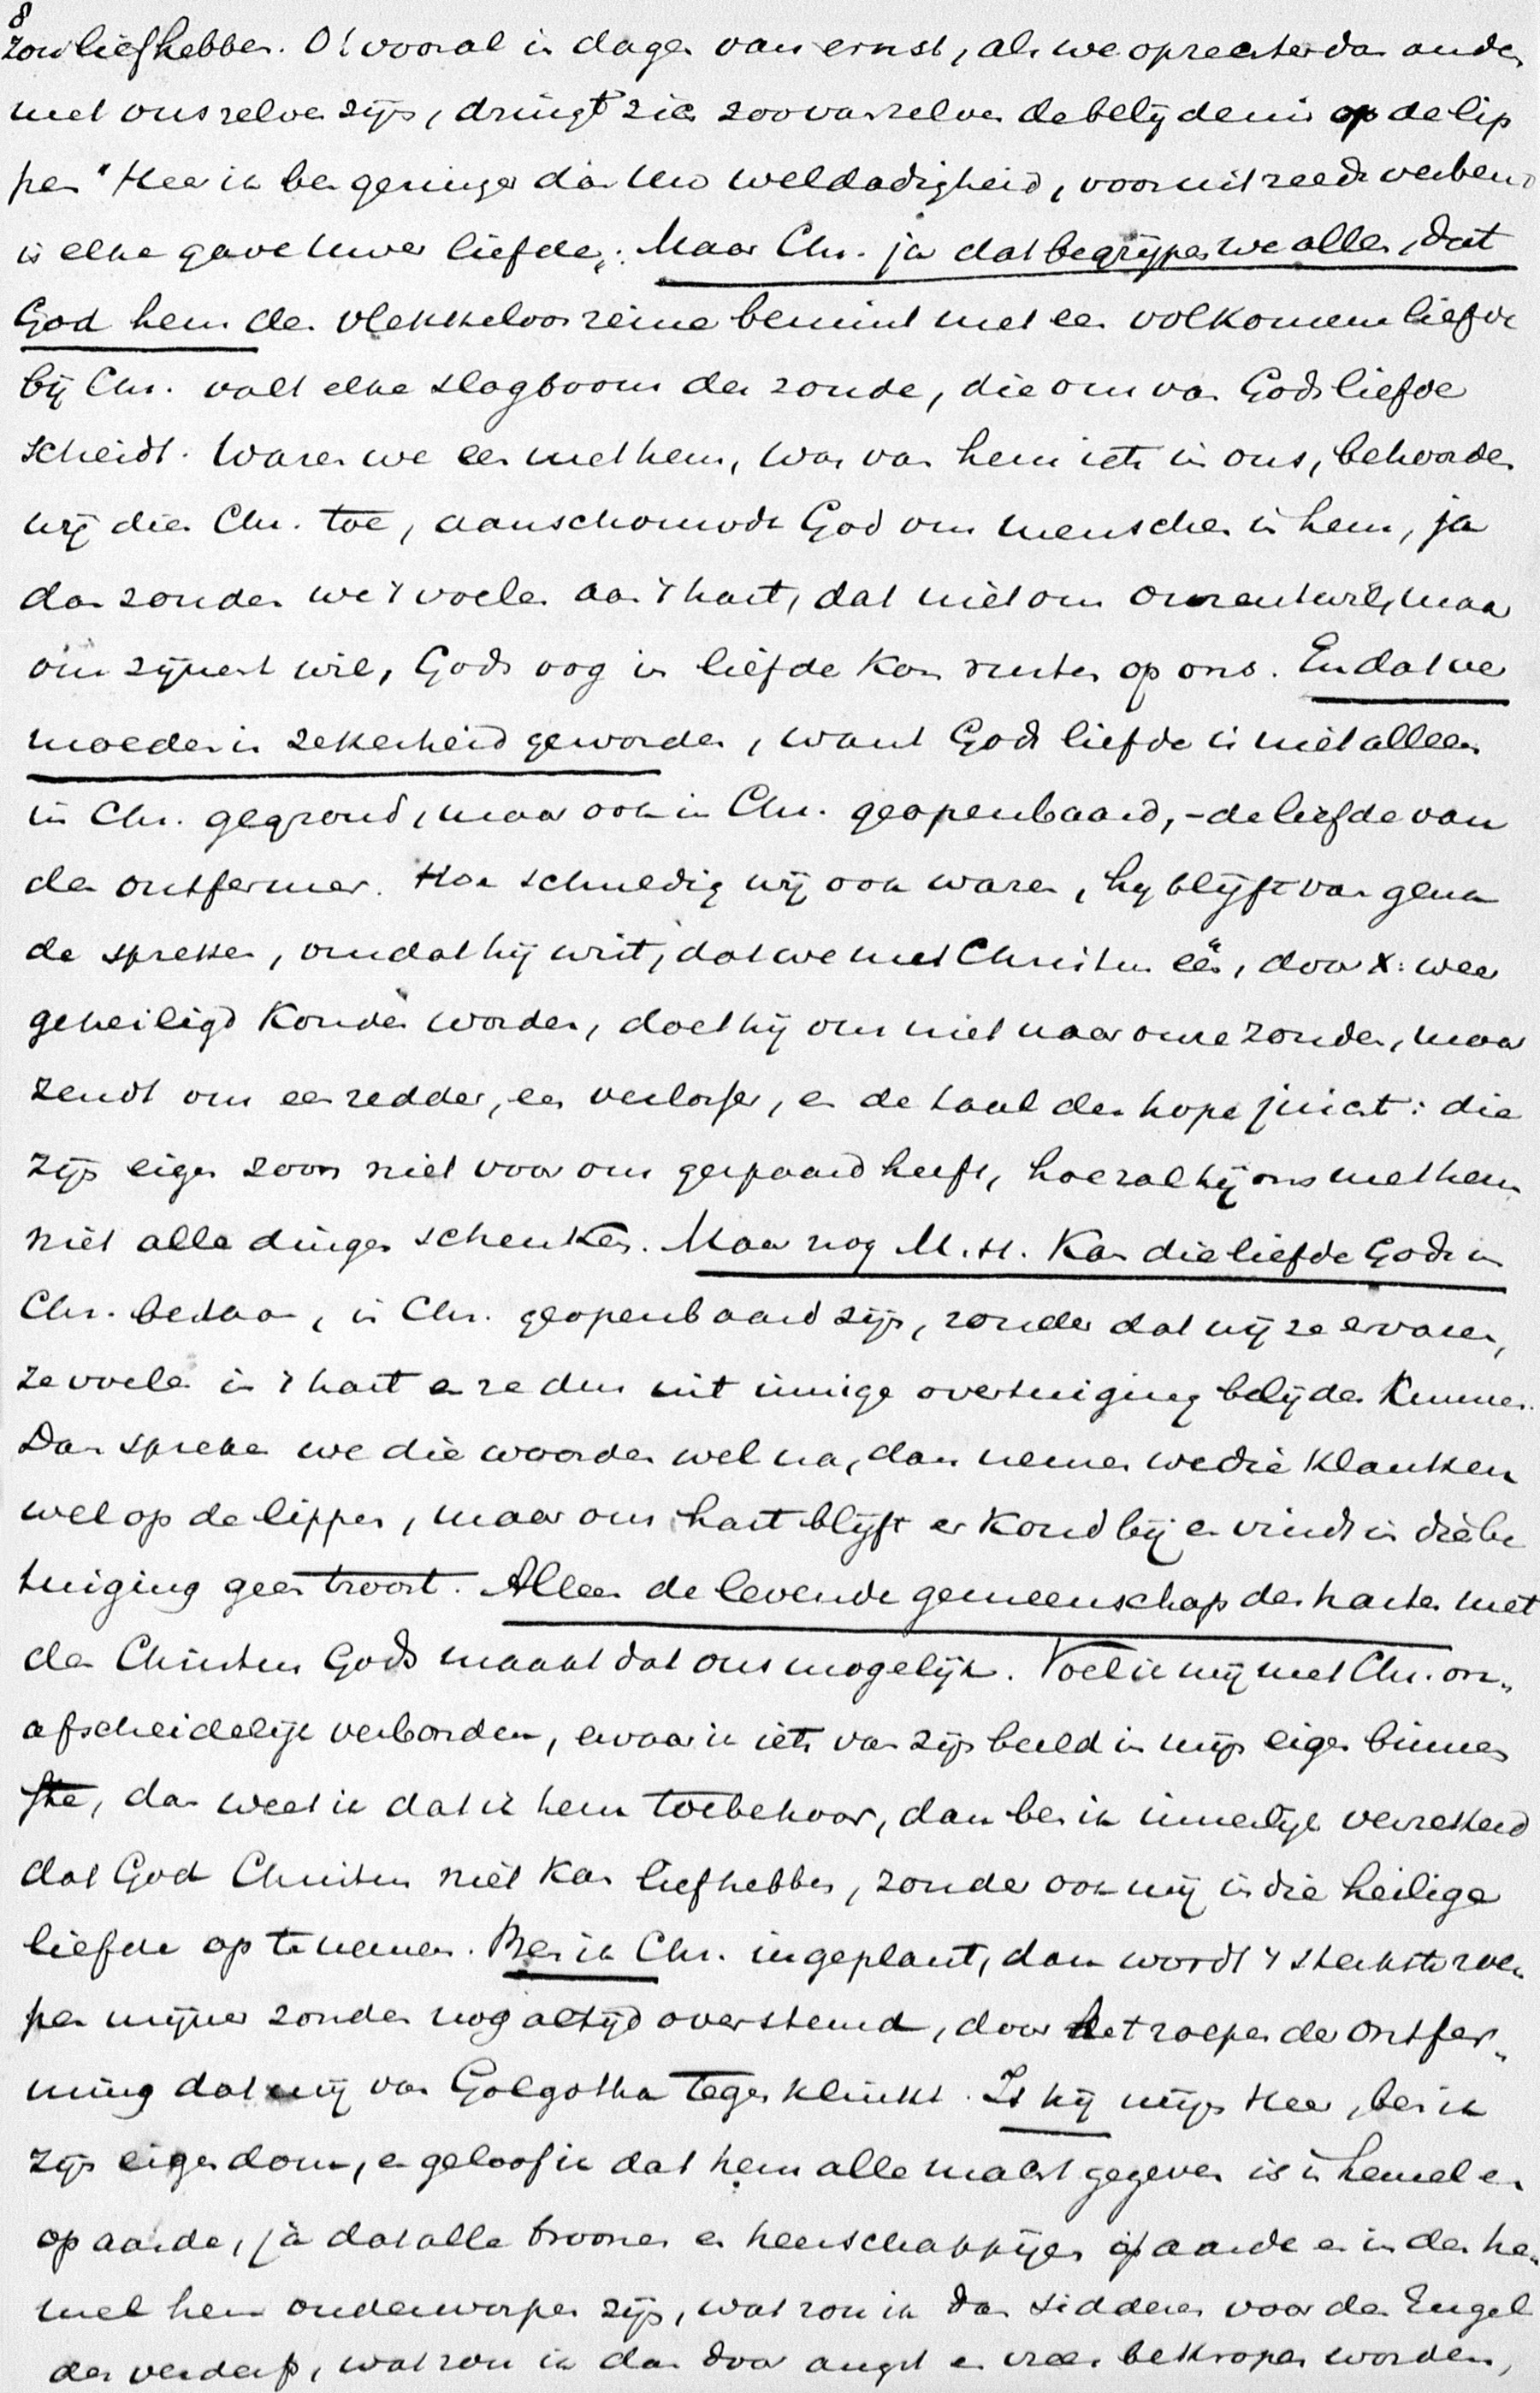 8
zou liefhebben. O! vooral in dagen van ernst, als we oprechter dan anders
met ons zelven zijn, dringt zich zoo vanzelven de belijdenis op de lip
pen "Heer ik ben geringer dan Uw weldadigheid, vooruit reeds verbeurd
is elke gave Uwer liefde". Maar Chr. ja dat begrijpen we allen, dat
God hem den vlekkeloos reine bemint met een volkomene liefde
bij Chr. valt elke slagboom der zonde, die ons van Gods liefde
scheidt. Waren we een met hem, was van hem iets in ons, behoorden
wij dien Chr. toe, aanschouwde God ons menschen in hem, ja
dan zouden we 't voelen aan 't hart, dat niet om onzentwil, maar
om zijnent wil, Gods oog in liefde kan rusten op ons. En dat ver
moeden is zekerheid geworden, want Gods liefde is niet alleen
in Chr. gegrond, maar ook in Chr. geopenbaard, - de liefde van
den ontfermer. Hoe schuldig wij ook waren, hij blijft van gena
de spreken, omdat hij wist, dat we met Christus één, door X: weer
geheiligd konden worden, doet hij ons niet naar onze zonden, maar
zendt ons een redder, een verlosser, en de taal der hope juicht: die
zijn eigen zoon niet voor ons gespaard heeft, hoe zal hij ons met hem
niet alle dingen schenken. Maar nog M.H. kan die liefde Gods in
Chr. bestaan, in Chr. geopenbaard zijn, zonder dat wij ze ervaren,
ze voelen in 't hart en ze dus uit innige overtuiging belijden kunnen.
Dan spreken we die woorden wel na, dan nemen we die klanken
wel op de lippen, maar ons hart blijft er koud bij en vindt in die be
tuiging geen troost. Alleen de levende gemeenschap des harten met
den Christus Gods maakt dat ons mogelijk. Voel ik mij met Chr. on-
afscheidelijk verbonden, ervaar ik iets van zijn beeld in mijn eigen binnen
ste, dan weet ik dat ik hem toebehoor, dan ben ik innerlijk verzekerd
dat God Christus niet kan liefhebben, zonder ook mij in die heilige
liefde op te nemen. Ben ik Chr. ingeplant, dan wordt 't sterkste roe
pen mijner zonden nog altijd overstemd, door het roepen der ontfer-
ming dat mij van Golgotha tegen klinkt. Is hij mijn Heer, ben ik
zijn eigendom, en geloof ik dat hem alle macht gegeven is in hemel en
op aarde, ja dat alle troonen en heerschappijen op aarde en in den he-
mel hem onderworpen zijn, wat zou ik dan sidderen voor den Engel
des verderfs, wat zou ik dan door angst en vrees bekropen worden,